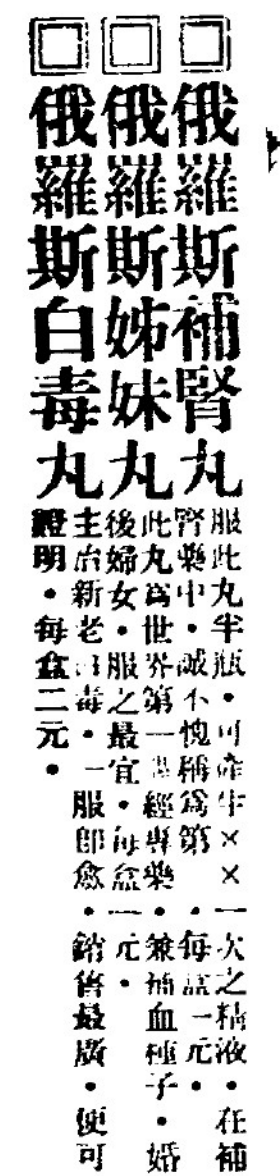 □俄羅斯補腎丸
服此丸半瓶・可產生××一次之精液・在補
腎藥中・誠不愧稱爲第一・每盒一元・
□俄羅斯姊妹丸
此丸爲世界第一調經專藥・兼補血種子・婚
後婦女・服之最宜・每盒一元・
□俄羅斯白毒丸
主治新老白毒・一服即愈・銷售最廣・便可
證明・每盒二元・